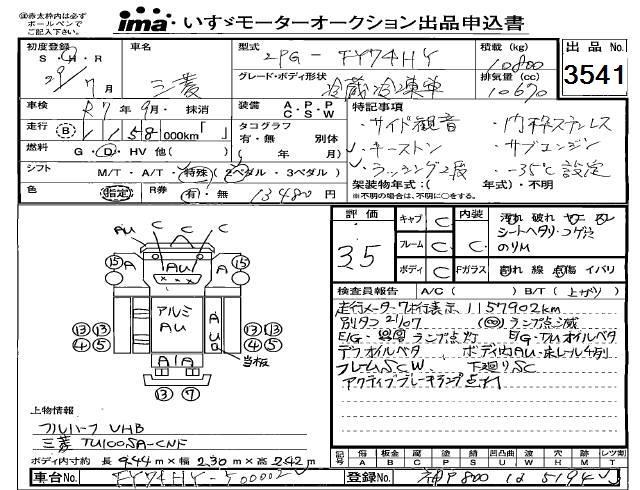 ㊟赤太枠内は必ず
ボールペンで
ご記入下さい。
ima・いすゞモーターオークション出品申込書
初度登録 S・H・R 29年7月
車名 三菱
型式 2PG-FY74HY
グレード・ボディ形状 冷蔵冷凍車
積載 (kg) 10800
排気量 (cc) 10670
出品No. 3541
車検 R7年9月・抹消
装備 A・P・P C・S・W
走行 Ⓑ 1158 000km「 」
タコグラフ 有・無 別体
燃料 G・D・HV 他( )
( 年 月)
シフト M/T・A/T・特殊(2ペダル・3ペダル)
色 指定 R券 有・無 13480円
特記事項
・サイド観音 ・内枠ステンレス
・キーストン ・サブエンジン
・ラッシング2段 ・-35℃設定
架装物年式:( 年式)・不明
※不明の場合は、不明に○をする。
評価 3.5
キャブ C 内装 C
フレーム C
ボディ C Fガラス
汚れ 破れ ヤニ
シートヘタリ・コゲ穴
のりM
割れ 線 点傷 イバリ
検査員報告 A/C ( ) B/T (上がり)
走行メーター7桁表示 1157902km
別タコ 21/07 ランプ点滅
E/G・ ランプ点灯 E/G・T/Mオイルベタ
デフオイルベタ ボディ内AU・床レール4列
フレームSCW 下廻りSC
アクティブブレーキランプ点灯
AU C C C
⑮ A AU A ⑮
アルミ AU
A AU
⑬ ⑬ ④ ⑤
⑬ ⑬ ④ ⑤
当板
A/A
⑬ ⑦
上物情報
フルハーフ VHB
三菱 TU100SA-CNF
ボディ内寸約 長 9.44 m×幅 2.30 m×高 2.42 m
記号 傷 A 板金 B 腐 C 塗 P 錆 S 凹 U 凸凹曲 W 波 Y 穴 H 欠 M レツ割 T
車台No. FY74HY-500002
登録No. 神戸 800 は 5194